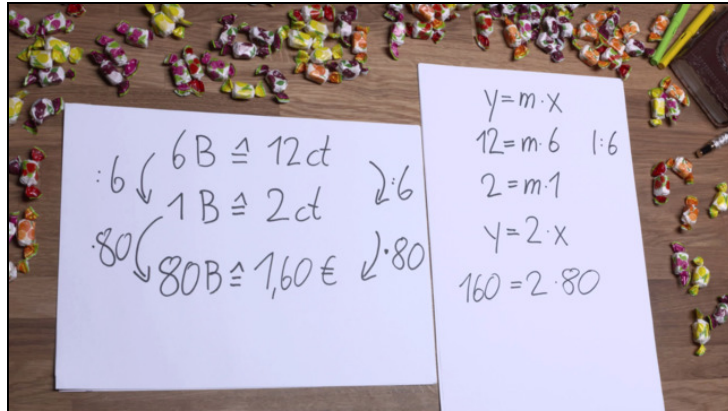 6B ≙ 12ct
:6 :6
1B ≙ 2ct
·80 ·80
80B ≙ 1,60€
y=m·x
12=m·6 |:6
2=m·1
y=2·x
160=2·80